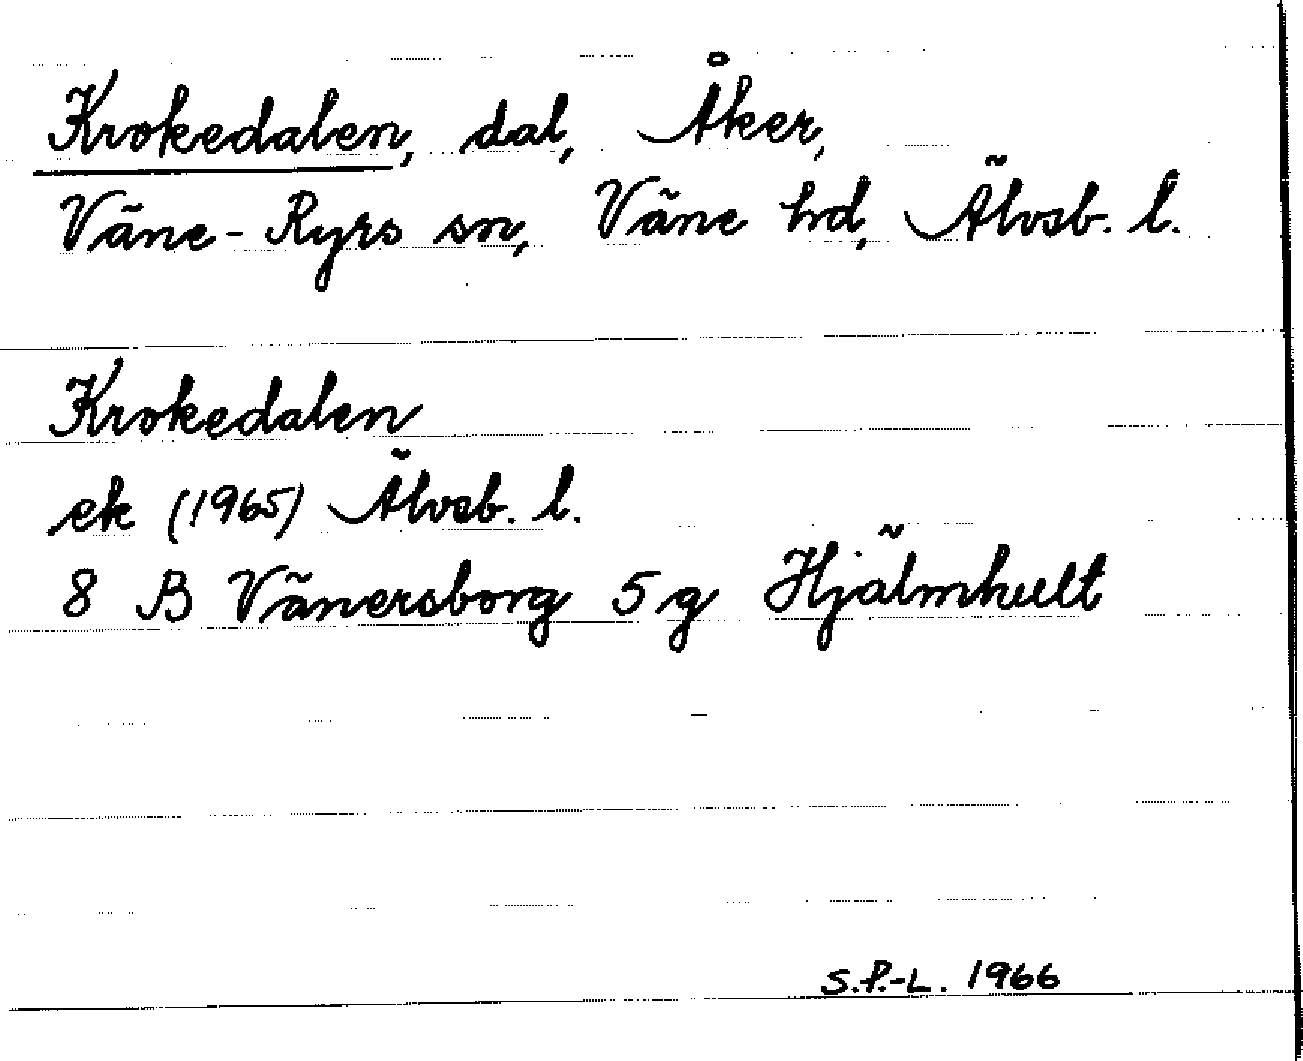 Krokedalen, dal, Åker,
Väne-Ryrs sn, Väne hd, Älvsb. l.
Krokedalen
ek (1965) Älvsb. l.
8 B Vänersborg 5 g Hjälmhult
S.P.-L. 1966